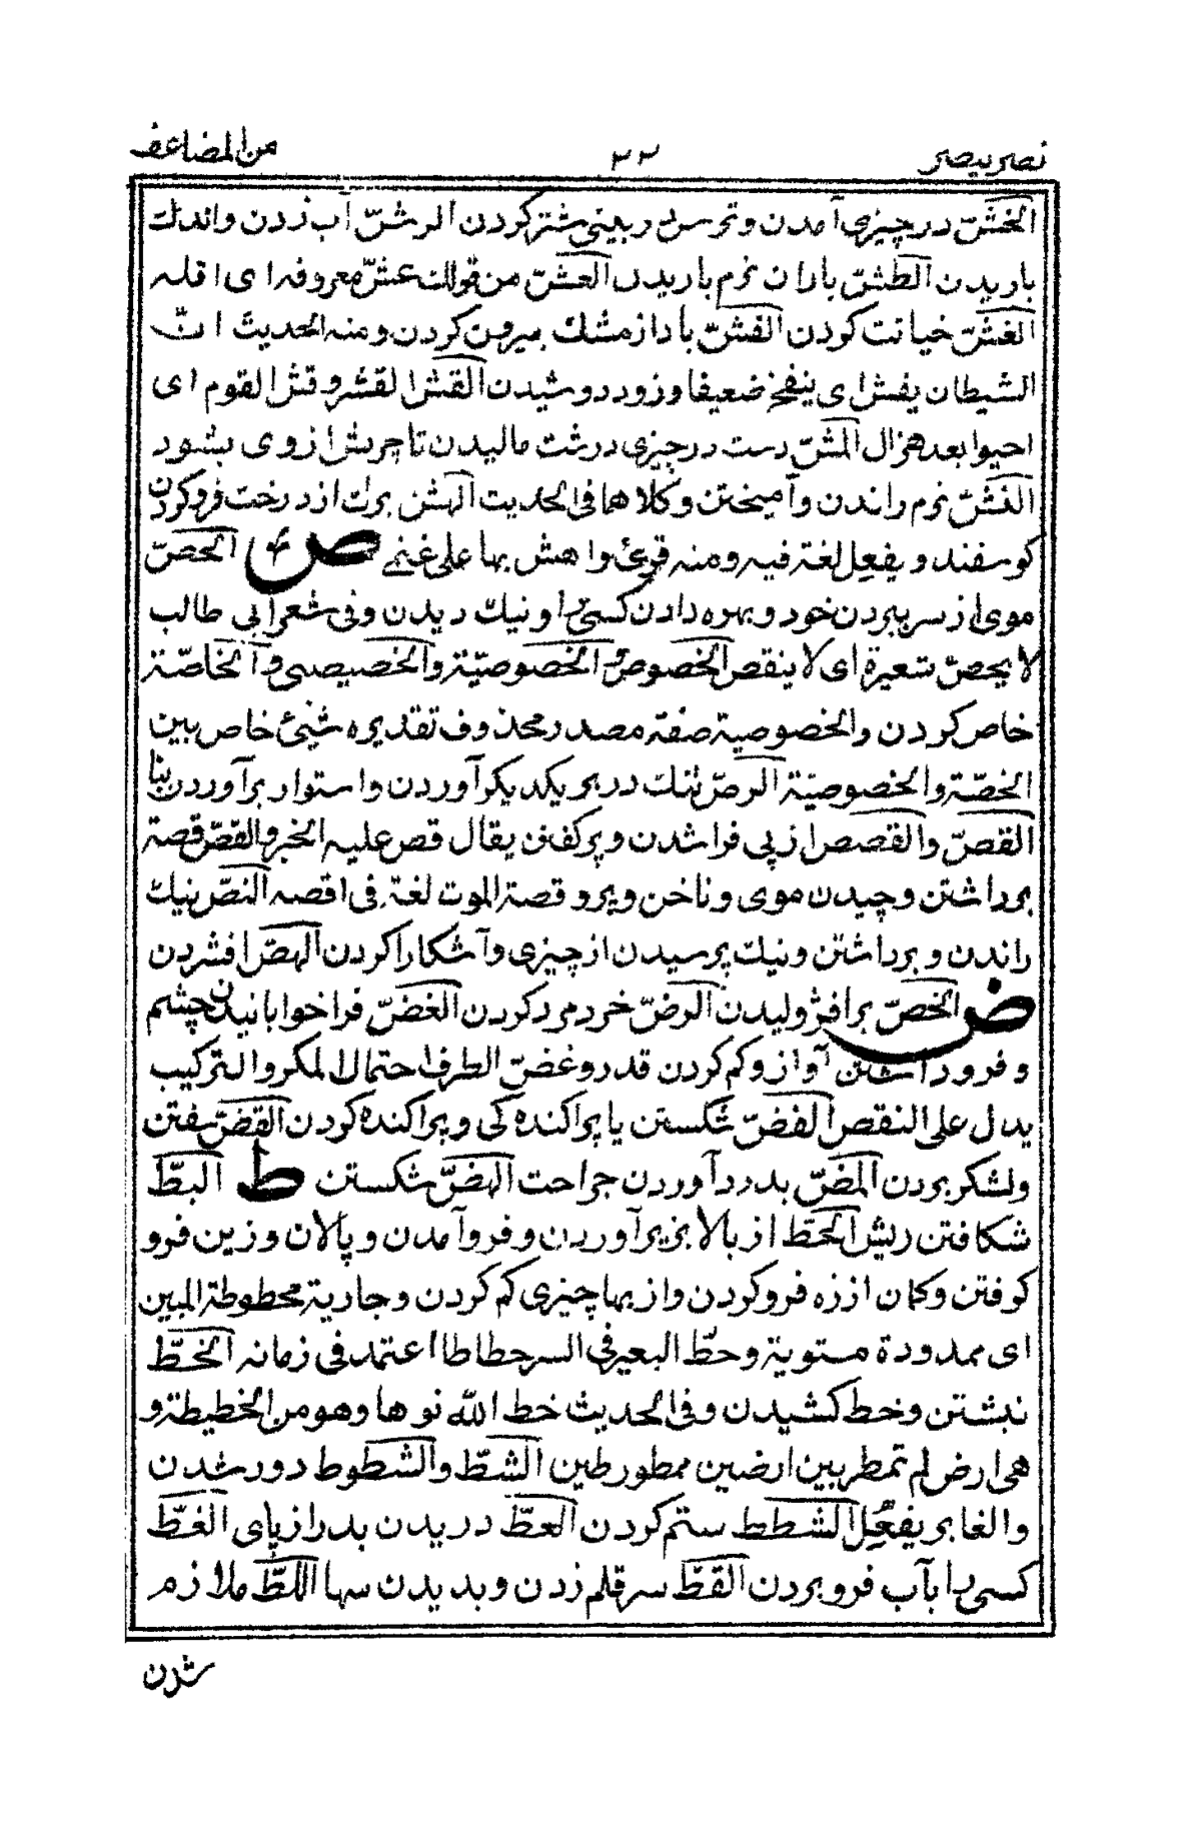 نصر ینصر ٢٢ من المضاعف
الخشّ در چیزی آمدن و ترس در بینی شتر کردن الرشّ آب زدن و اندك
باریدن الطشّ باران نرم باریدن العشّ من قولك عشّ معروفه ای اقله
الغشّ خیانت کردن الفشّ باد از مشك بیرون کردن و منه الحدیث انّ
الشیطان یفش ای ینفخ ضعیفا و زود دوشیدن القش القشر و قش القوم ای
احیوا بعد هزال المشّ دست در چیزی درشت مالیدن تا چربش از وی بشود
النشّ نرم راندن و آمیختن و کلاهما فی الحدیث الهش برك از درخت فرو کردن
کوسفند و یفعِل لغة فیه و منه قرئ و اهش بها علی غنمی ص الحصّ
موی از سر ببردن خود و بهره دادن کسی را و نیك دیدن و فی شعر ابی طالب
لا یحصّ شعیرة ای لا ینقص الخصوص و الخصوصیّة و الخصیصی و الخاصّة
خاص کردن و الخصوصیة صفة مصدر محذوف تقدیره شیئ خاص بین
الخصّة و الخصوصیّة الرصّ تنك در بر یکدیکر آوردن و استوار برآوردن بنا
القصّ و القصص از پی فرا شدن و بر کفتن یقال قص علیه الخبر و القصّ قصة
برداشتن و چیدن موی و ناخن و پر و قصة الموت لغة فی اقصه النصّ نیك
راندن و برداشتن و نیك پرسیدن از چیزی و آشکارا کردن الهصّ افشردن
ض الحضّ برافژولیدن الرضّ خرد مرد کردن الغضّ فرا خوابانیدن چشم
و فرو داشتن آواز و کم کردن قدر و غضّ الطرف احتمال المکر و الترکیب
یدل علی النقص الفضّ شکستن یا پراکنده کی و پراکنده کردن القضّ سفتن
و لشکر بردن المضّ بدرد آوردن جراحت الهضّ شکستن ط البطّ
شکافتن ریش الحطّ از بالا بزیر آوردن و فرو آمدن و پالان و زین فرو
کوفتن و کمان از زه فرو کردن و از بها چیزی کم کردن و جاریة محطوطة المتین
ای ممدودة مستویة و حطّ البعیر فی السیر حطاطا اعتمد فی زمامه الخطّ
نبشتن و خط کشیدن و فی الحدیث خط الله نوها و هو من الخطیطة و
هی ارض لم تمطر بین ارضین ممطورطین الشطّ و الشطوط دور شدن
و الغابر یفعِل الشطط ستم کردن العطّ دریدن بدرازیای الغطّ
کسی را بآب فرو بردن القطّ سر قلم زدن و بدیدن سها اللطّ ملازم
شدن